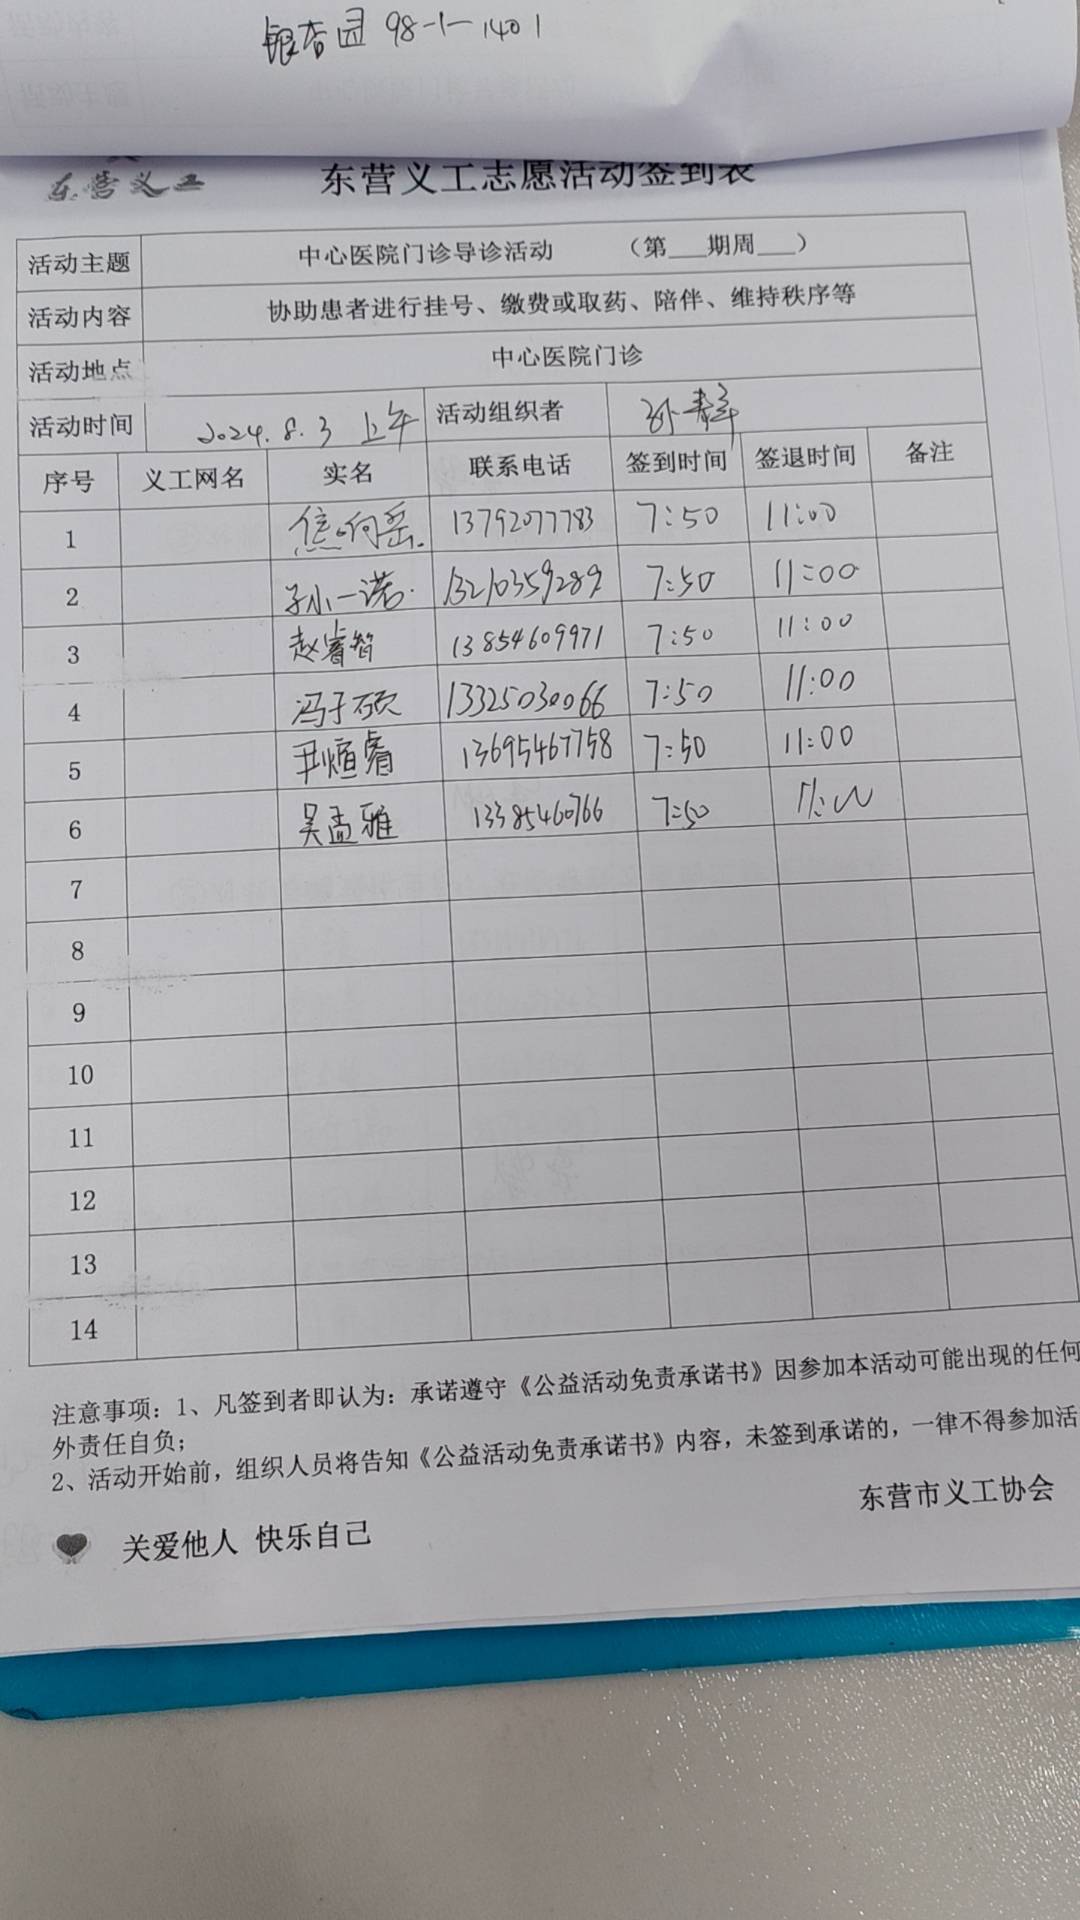 银杏园 98-1-1401
东营义工
东营义工志愿活动签到表
活动主题 中心医院门诊导诊活动 （第___期周___）
活动内容 协助患者进行挂号、缴费或取药、陪伴、维持秩序等
活动地点 中心医院门诊
活动时间 2024.8.3 上午 活动组织者
序号 义工网名 实名 联系电话 签到时间 签退时间 备注
1 焦响岳. 13792077783 7:50 11:00
2 孙小一诺. 13210359289 7:50 11:00
3 赵睿智 13854609971 7:50 11:00
4 冯子硕 13325030066 7:50 11:00
5 尹煊睿 13695467758 7:50 11:00
6 吴孟雅 13385460766 7:50 11:00
7
8
9
10
11
12
13
14
注意事项：1、凡签到者即认为：承诺遵守《公益活动免责承诺书》因参加本活动可能出现的任何
外责任自负；
2、活动开始前，组织人员将告知《公益活动免责承诺书》内容，未签到承诺的，一律不得参加活
东营市义工协会
关爱他人 快乐自己